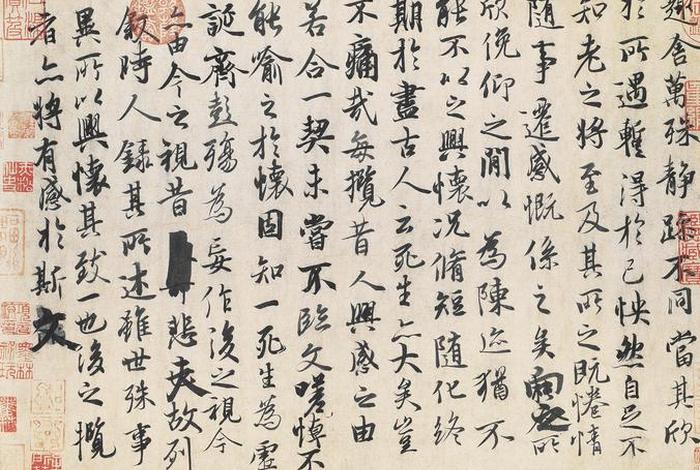 趣舍萬殊静躁不同當其欣
於所遇蹔得於己怏然自足不
知老之將至及其所之既惓情
隨事遷感慨係之矣向之所
欣俛仰之閒以為陳迹猶不
能不以之興懷况脩短隨化終
期於盡古人云死生亦大矣豈
不痛哉每攬昔人興感之由
若合一契未嘗不臨文嗟悼不
能喻之於懷固知一死生為虛
誕齊彭殤為妄作後之視今
亦由今之視昔悲夫故列
叙時人錄其所述雖世殊事
異所以興懷其致一也後之攬
者亦將有感於斯文